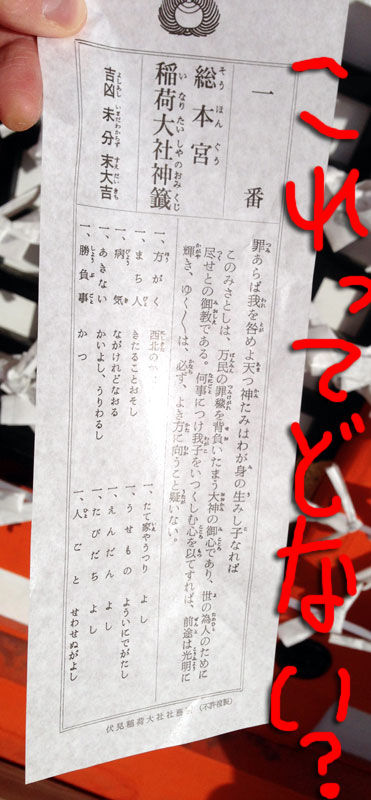 一番
総本宮
稲荷大社神籤
吉凶未分末大吉
罪あらば我を咎めよ天つ神たみはわが身の生みし子なれば
このみさとしは、万民の罪穢を背負いたまう大神の御心であり、世の為人のために
尽せとの御教である。何事につけ我子をいつくしむ心を以てすれば、前途は光明に
輝き、ゆく〱は、必ず、よき方に向うこと疑いない。
一、方がく 西北の
一、まち人 きたることおそし
一、病気 ながけれどなおる
一、あきない かいよし、うりわるし
一、勝負事 かつ
一、たて家やうつり よし
一、うせもの よういにでがたし
一、えんだん よし
一、たびだち よし
一、人ごと せわせぬがよし
伏見稲荷大社社務
(不許複製)
これってどない?